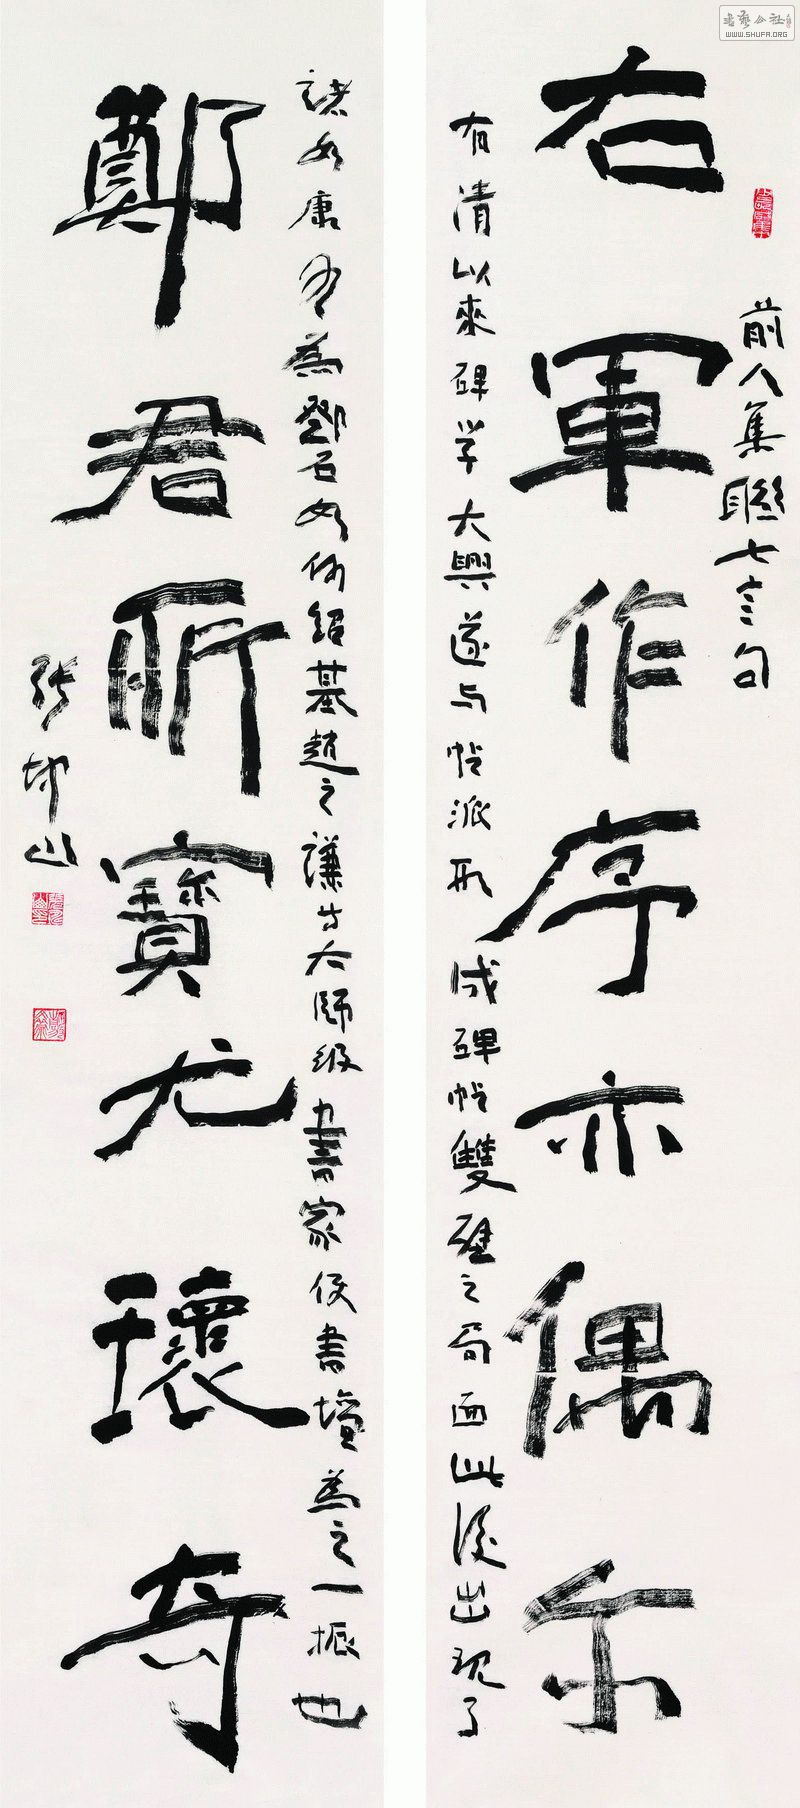 書藝公社
WWW.SHUFA.ORG
前人集聯七言句
右軍作序亦偶尔
有清以來碑学大興遂与帖派形成碑帖雙壁之局面此後出現了
諸如康有為鄧石如何紹基趙之謙等大師級書家使書壇為之一振也
鄭君所寶尤瓌奇
张坤山